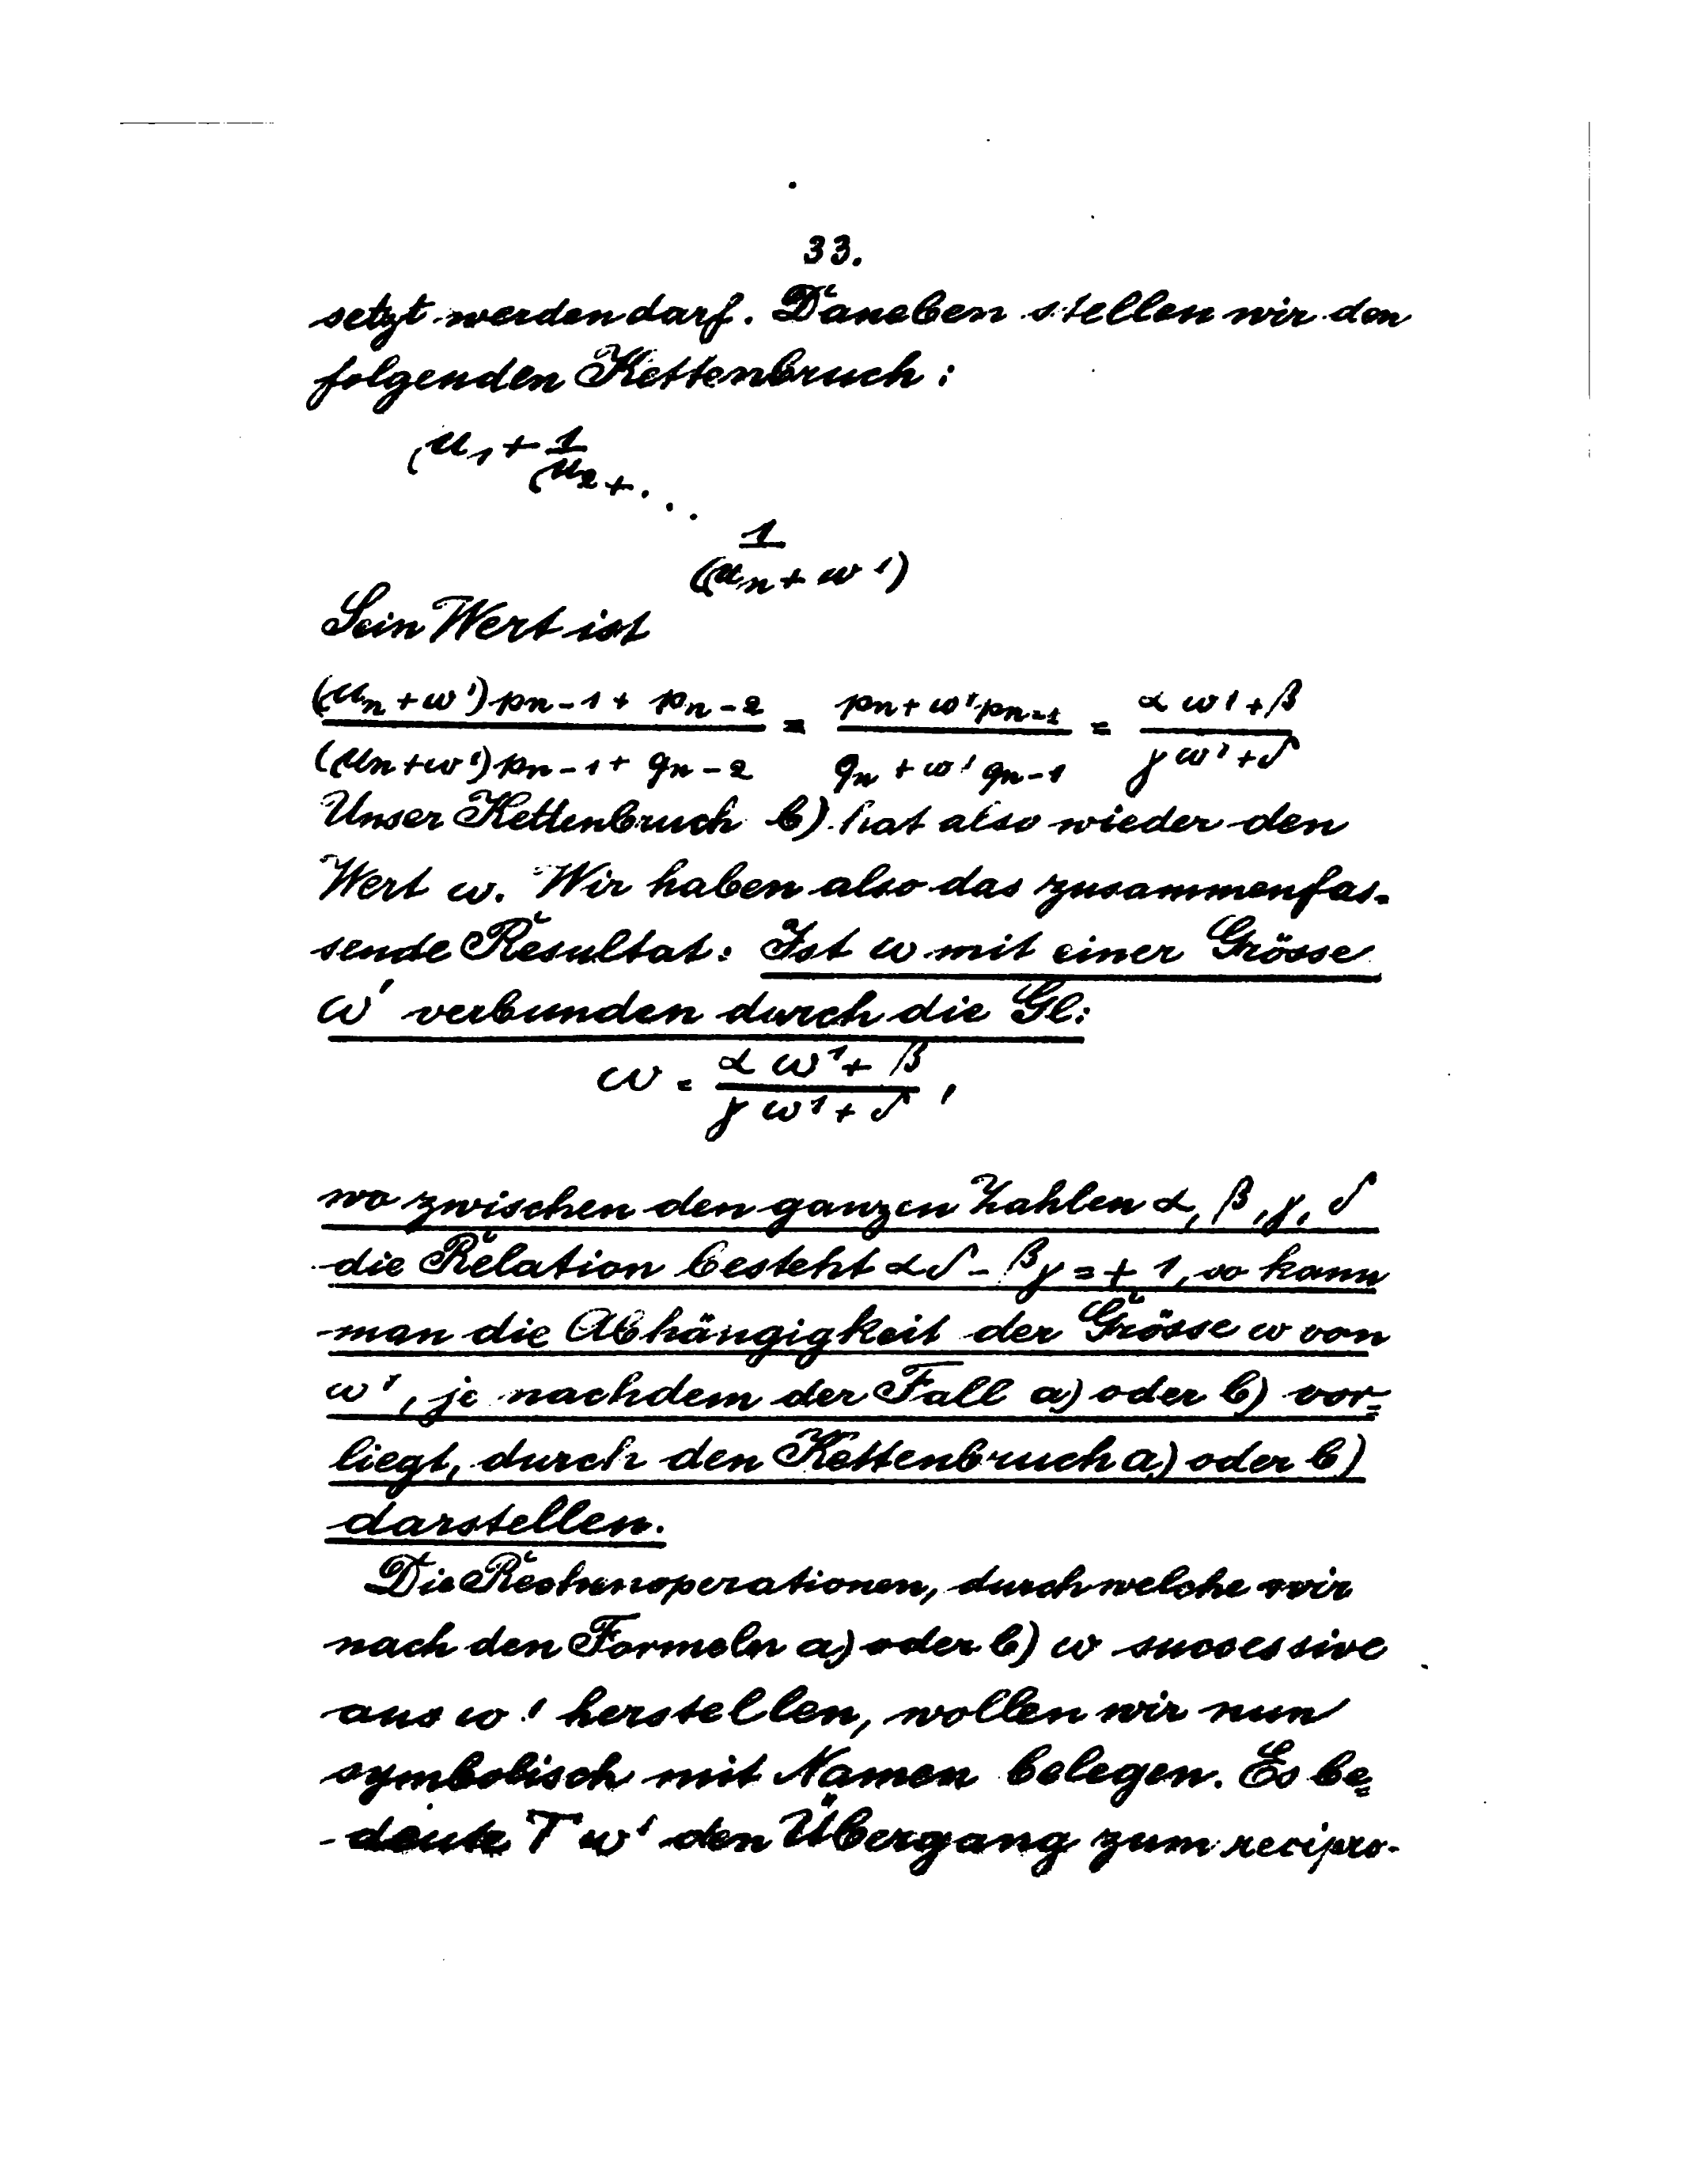 33.
setzt werden darf. Daneben stellen wir den
folgenden Kettenbruch:
μ₁ + 1
μ₂ + . . .
1
(μₙ + ω')
Sein Wert ist
(μₙ + ω') pₙ₋₁ + pₙ₋₂ / (μₙ + ω') pₙ₋₁ + qₙ₋₂ = pₙ + ω' pₙ₋₁ / qₙ + ω' qₙ₋₁ = α ω' + β / γ ω' + δ
Unser Kettenbruch b) hat also wieder den
Wert ω. Wir haben also das zusammenfas-
sende Resultat: Ist ω mit einer Grösse
ω' verbunden durch die Gl:
ω = α ω' + β / γ ω' + δ ,
wo zwischen den ganzen Zahlen α, β, γ, δ
die Relation besteht αδ - βγ = + 1, so kann
man die Abhängigkeit der Grösse ω von
ω', je nachdem der Fall a) oder b) vor=
liegt, durch den Kettenbruch a) oder b)
darstellen.
Die Rechenoperationen, durch welche wir
nach den Formeln a) oder b) ω successive
aus ω' herstellen, wollen wir nun
symbolisch mit Namen belegen. Es be=
deute T ω' den Übergang zum recipro-